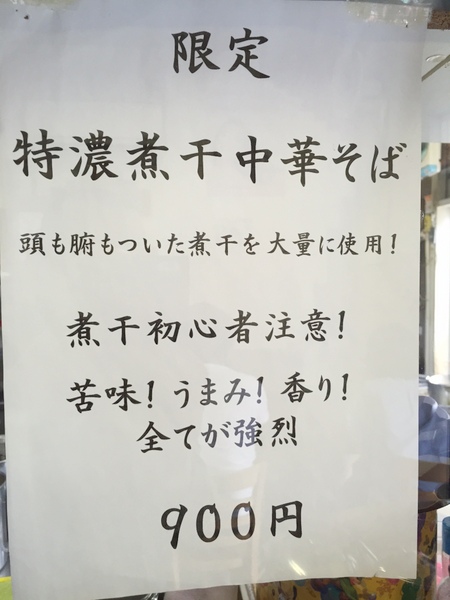 限定
特濃煮干中華そば
頭も腑もついた煮干を大量に使用!
煮干初心者注意!
苦味!うまみ!香り!
全てが強烈
900円